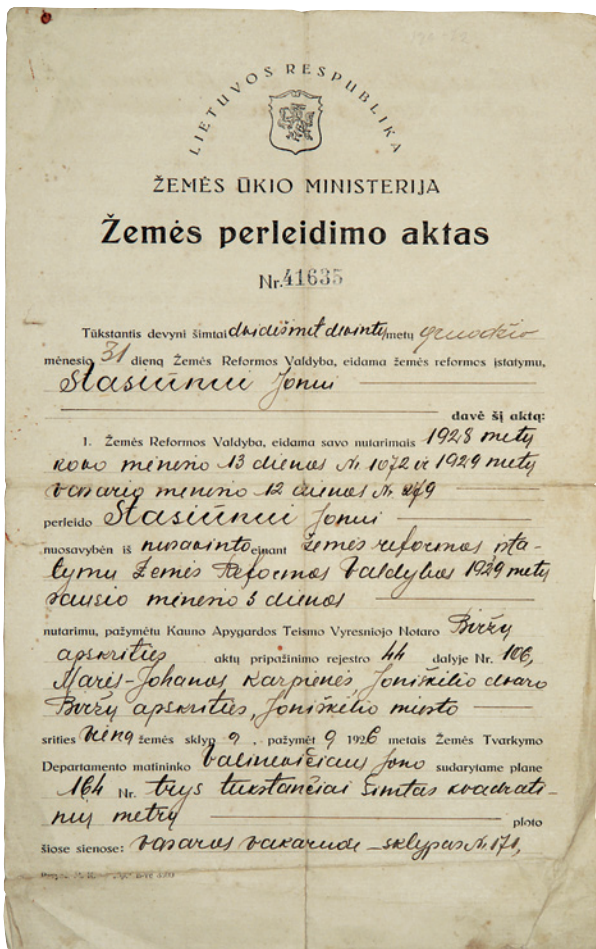 LIETUVOS RESPUBLIKA
ŽEMĖS ŪKIO MINISTERIJA
Žemės perleidimo aktas
Nr. 41635
Tūkstantis devyni šimtai dvidešimt devintų metų gruodžio
mėnesio 31 dieną Žemės Reformos Valdyba, eidama žemės reformos įstatymu,
Stasiūnui Jonui
davė šį aktą:
1. Žemės Reformos Valdyba, eidama savo nutarimais 1928 metų
kovo mėnesio 13 dienos Nr. 1072 ir 1929 metų
vasario mėnesio 12 dienos Nr. 279
perleido Stasiūnui Jonui
nuosavybėn iš nusavinto einant žemės reformos įsta-
tymu Žemės Reformos Valdybos 1929 metų
sausio mėnesio 3 dienos
nutarimu, pažymėtu Kauno Apygardos Teismo Vyresniojo Notaro Biržų
apskrities aktų pripažinimo rejestro 44 dalyje Nr. 106,
Marės-Johanos Karpienės, Joniškėlio dvaro
Biržų apskrities, Joniškėlio miesto
srities vieną žemės sklyp ą, pažymėt ą 1926 metais Žemės Tvarkymo
Departamento matininko Valinevičiaus Jono sudarytame plane
164 Nr. trys tukstančiai šimtas kvadrati-
nių metrų ploto
šiose sienose: vasaros vakaruose – sklypas Nr. 171,